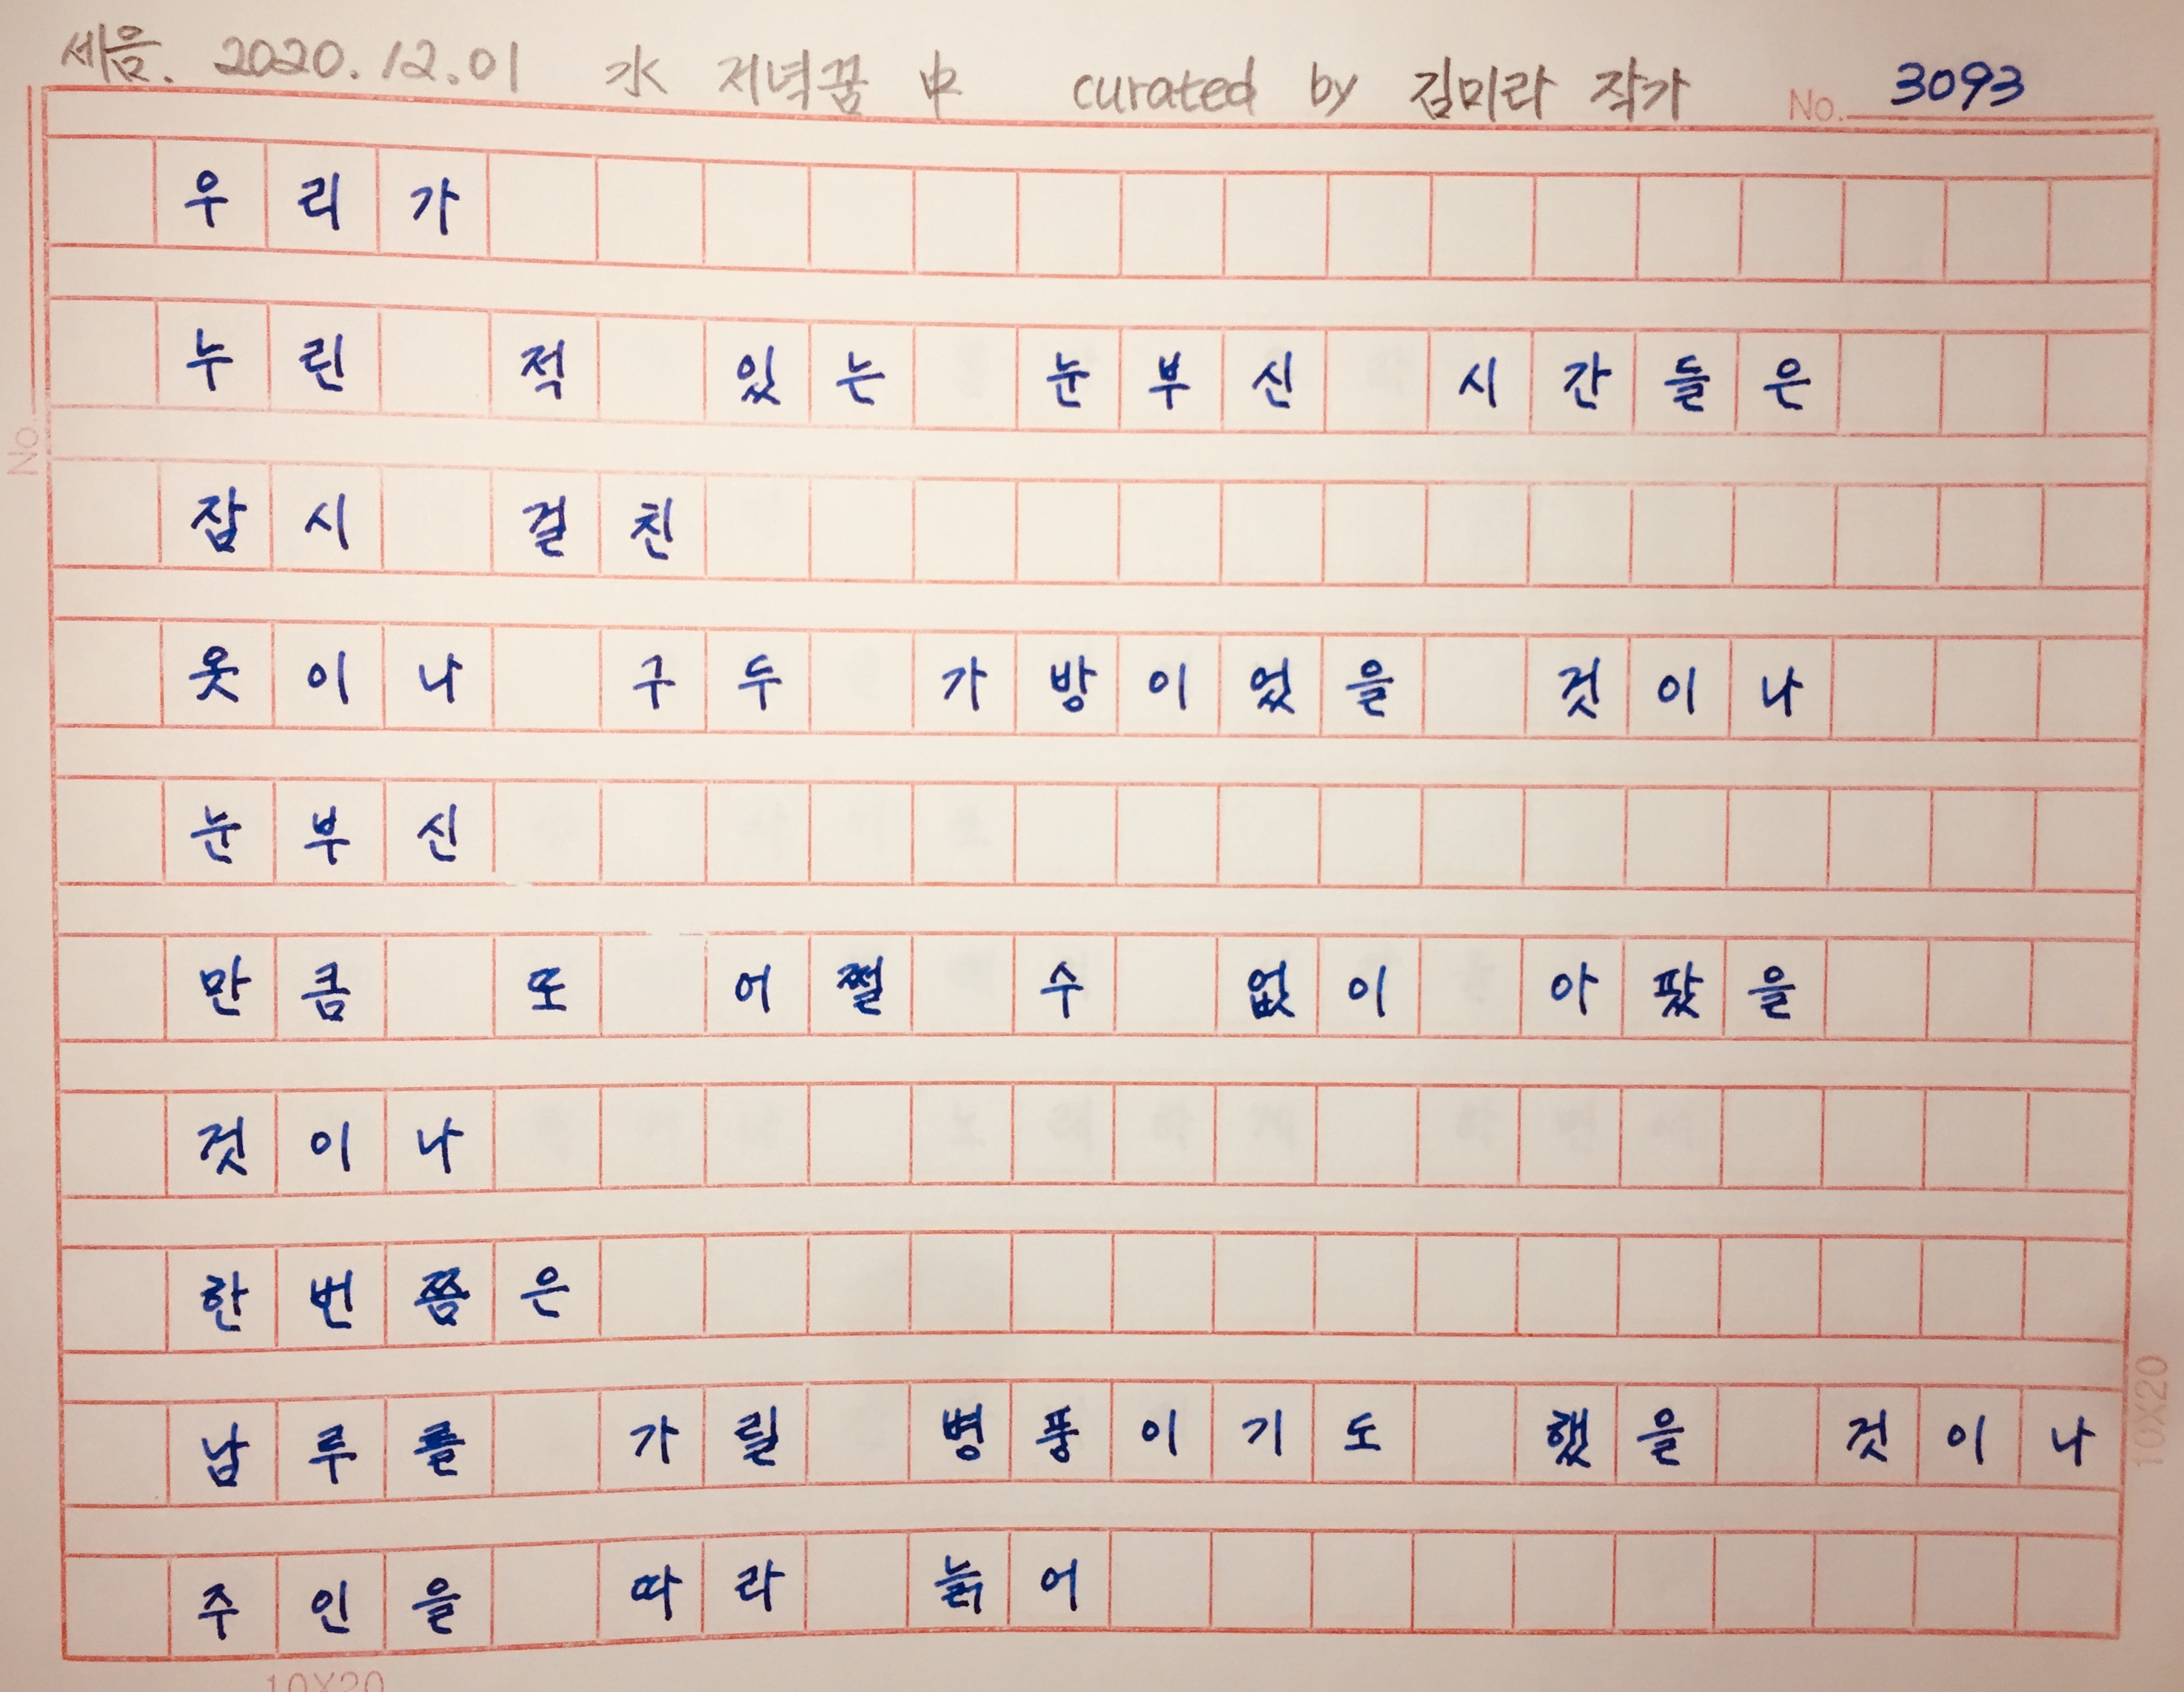 세음. 2020.12.01 水 저녁꿈 中 curated by 김미라 작가 No. 3093
우리가
누린 적 있는 눈부신 시간들은
잠시 걸친
옷이나 구두 가방이었을 것이나
눈부신
만큼 또 어쩔 수 없이 아팠을
것이나
한번쯤은
남루를 가릴 병풍이기도 했을 것이나
주인을 따라 늙어
No.
10X20
10X20